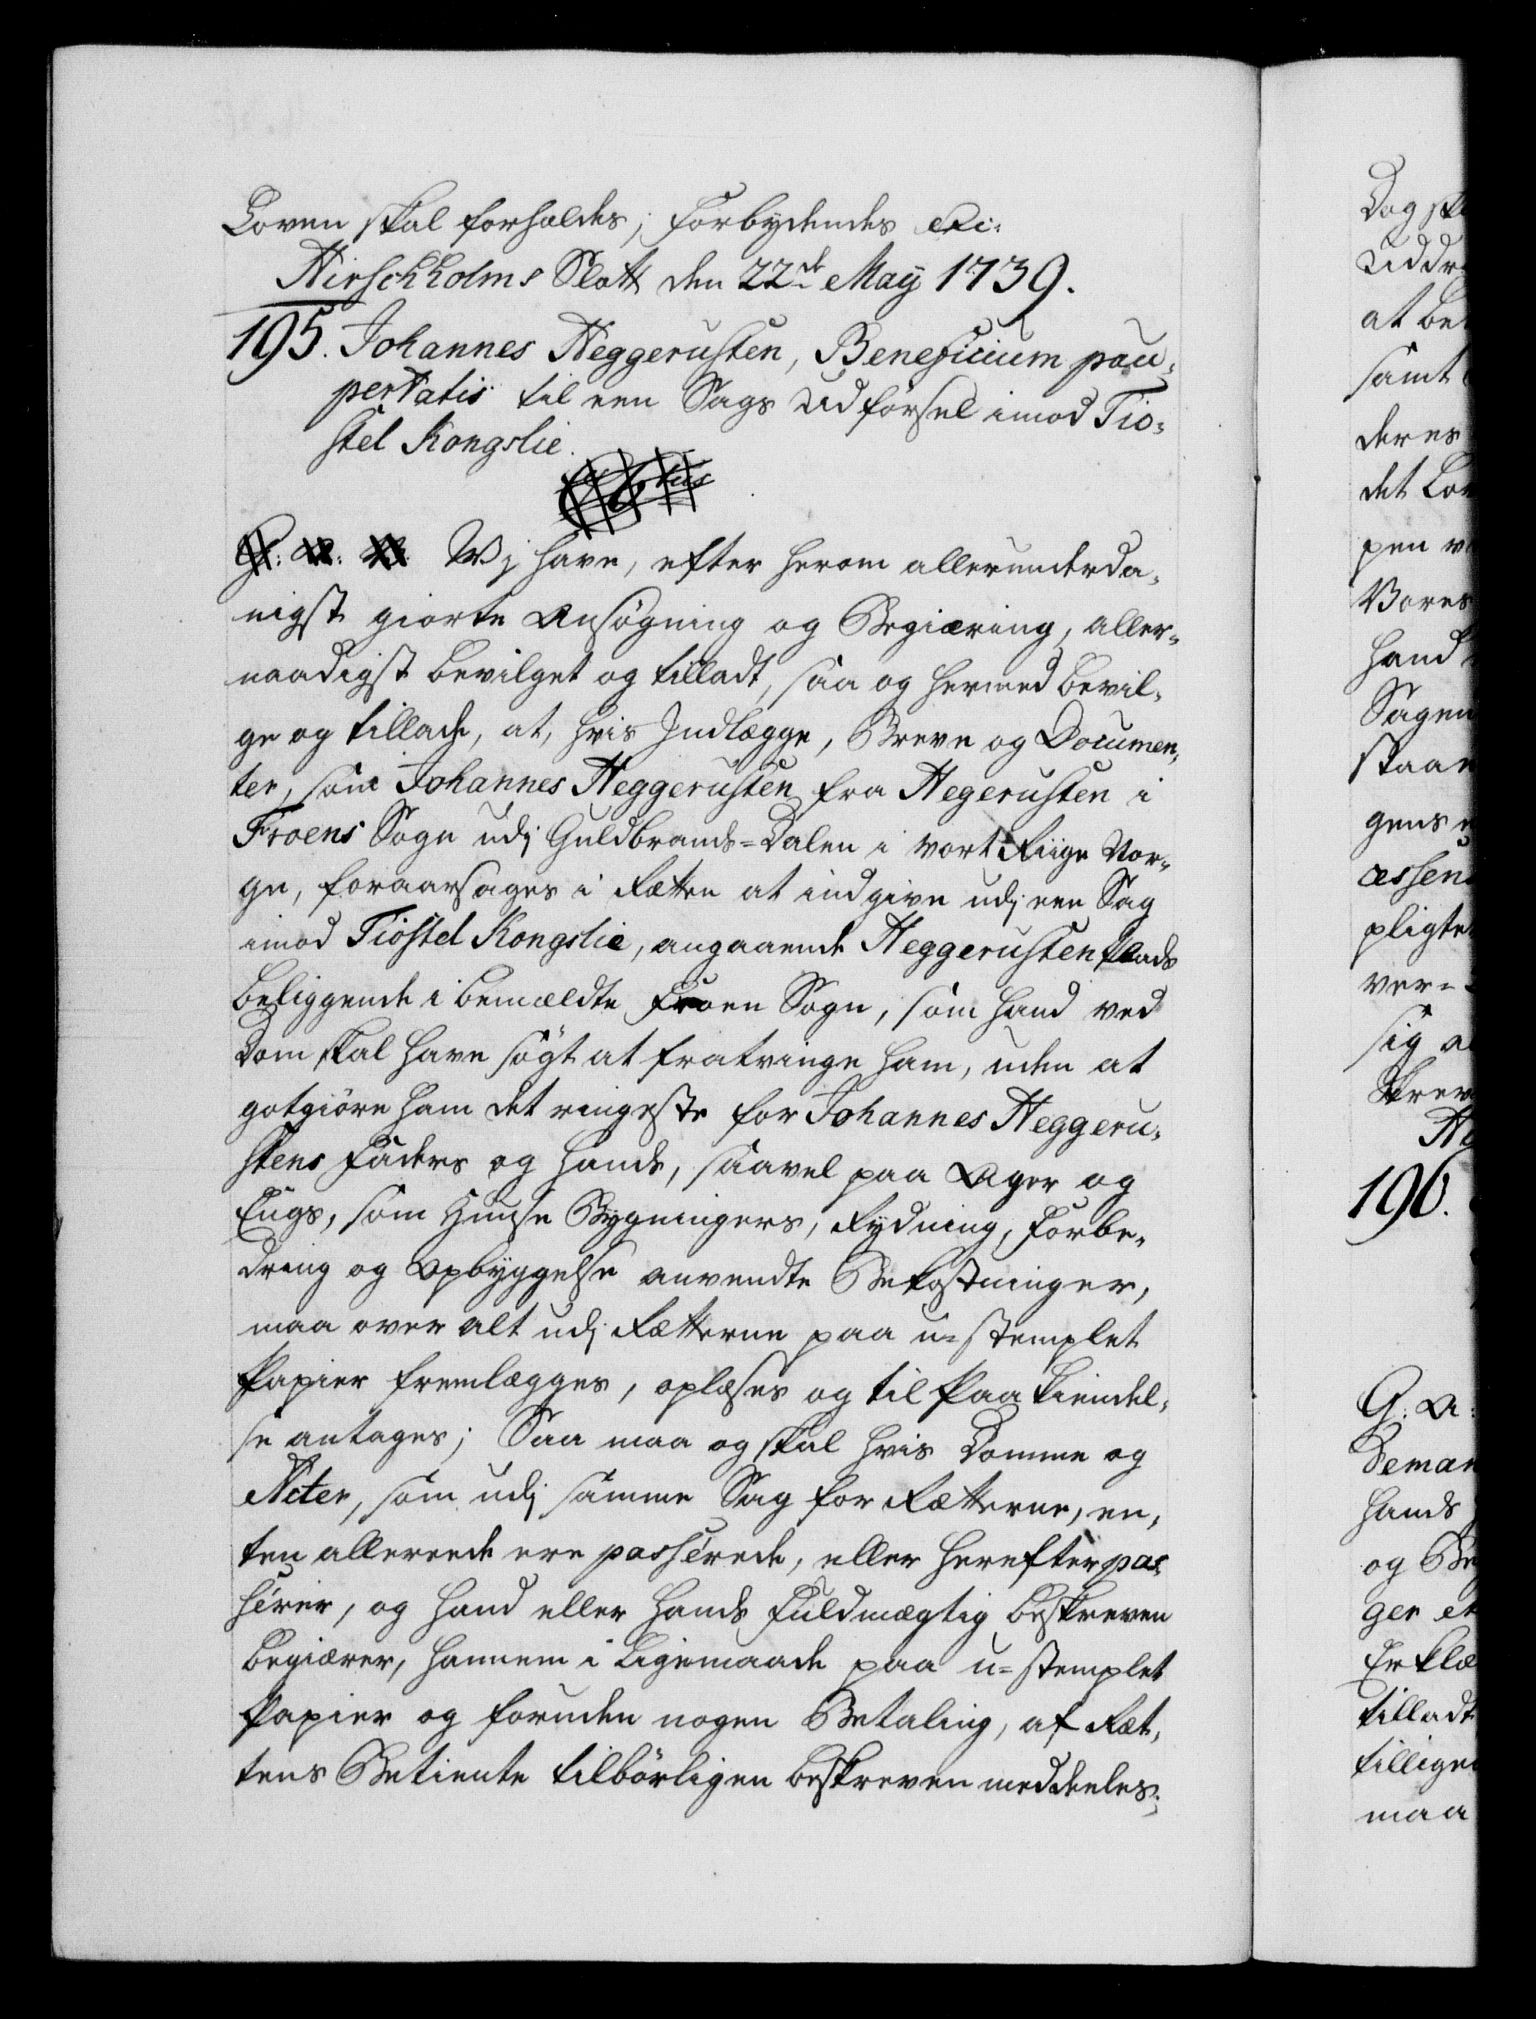 Loven skal forholdes; Forbydendes etc:
Hirschholms Slott den 22de Maij 1739.
195. Johannes Heggerusten, Beneficium pau-
pertatis til een Sags Udførsel imod Tio-
stel Kongslie.
Wj have, efter herom allerunderda-
nigst giorte Ansøgning og Begiæring, aller-
naadigst bevilget og tilladt, saa og hermed bevil-
ge og tillade, at, hvis Indlægge, Breve og Documen-
ter, som Johannes Heggerusten fra Hegerusten i
Froens Sogn udj Guldbrands-Dalen i vort Riige Nor-
ge, foraarsages i Rætten at indgive udj een Sag
imod Tiostel Kongslie, angaaende Heggerusten Plads
beliggende i bemældte Froen Sogn, som hand ved
Dom skal have søgt at fratvinge ham, uden at
gotgiøre ham det ringeste for Johannes Heggeru-
stens Faders og hands, saavel paa Ager og
Engs, som Huuse Bygningers, Rydning, Forbe-
dring og Opbyggelse anvendte Bekostninger,
maa over alt udj Rætterne paa u-stemplet
Papier fremlægges, oplæses og til Paakiendel-
se antages; Saa maa og skal hvis Domme og
Acter, som udj samme Sag for Rætterne, en-
ten allereede ere passerede, eller herefter pas-
serer, og hand eller hands Fuldmægtig beskreven
begiærer, hannem i ligemaade paa u-stemplet
Papier og foruden nogen Betaling, af Ræt-
tens Betiente tilbørligen beskreven meddeeles;
Dog sk
Uddr
at be
samt
deres
det Lo
pen v
Vores
hand
Sagen
staa
gens
æssen
pligte
ver-
sig a
skrev
196.
G: A:
Deman
hands
og Be
ger e
Erklæ
tilladt
tillige
maa